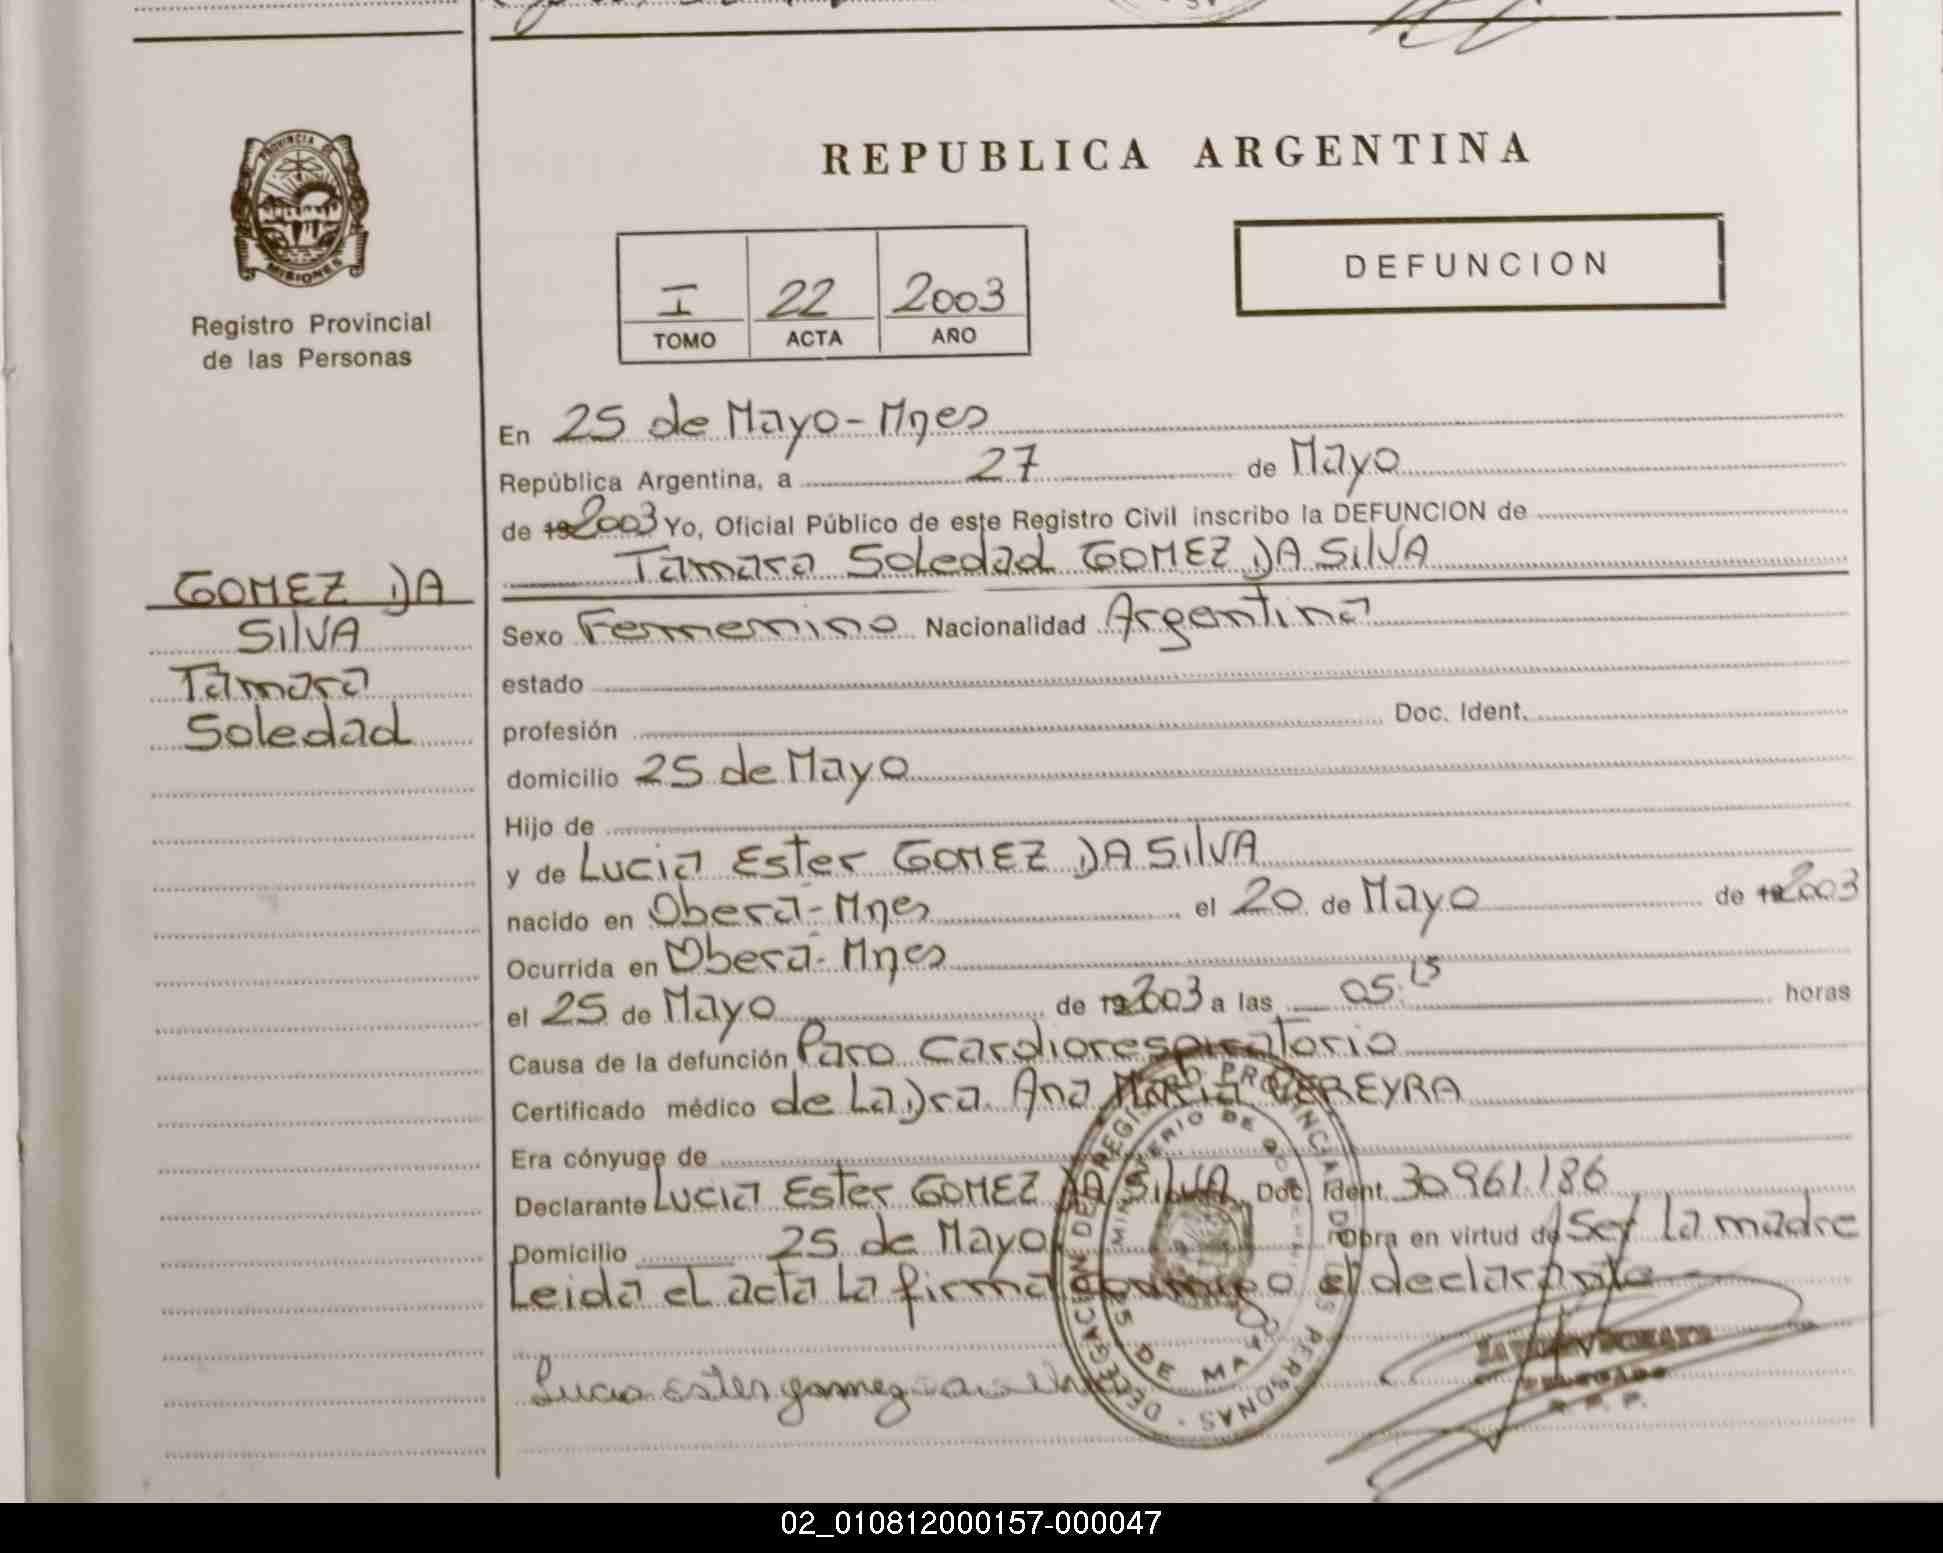 PROVINCIA DE
MISIONES
Registro Provincial
de las Personas
GOMEZ DA
SilVA
Tamara
Soledad
REPUBLICA ARGENTINA
I 22 2003
TOMO ACTA AÑO
DEFUNCION
En 25 de Mayo - Mnes
República Argentina, a 27 de Mayo
de 192003 Yo, Oficial Público de este Registro Civil inscribo la DEFUNCION de
Tamara Soledad GOMEZ DA SilVA
Sexo Femenino Nacionalidad Argentina
estado
profesión Doc. Ident.
domicilio 25 de Mayo
Hijo de
y de Lucia Ester GOMEZ DA SilVA
nacido en Oberá - Mnes el 20 de Mayo de 192003
Ocurrida en Oberá - Mnes
el 25 de Mayo de 192003 a las 05:15 horas
Causa de la defunción Paro Cardiorespiratorio
Certificado médico de La Dra. Ana Maria PEREYRA
Era cónyuge de
Declarante Lucia Ester GOMEZ DA SilVA Doc. Ident. 30.961.186
Domicilio 25 de Mayo Obra en virtud de Ser La madre
Leida el acta La firma conmigo el declarante
Lucia ester gomez da
DELEGADO
R. P. P.
25 DE MAYO
02_010812000157-000047